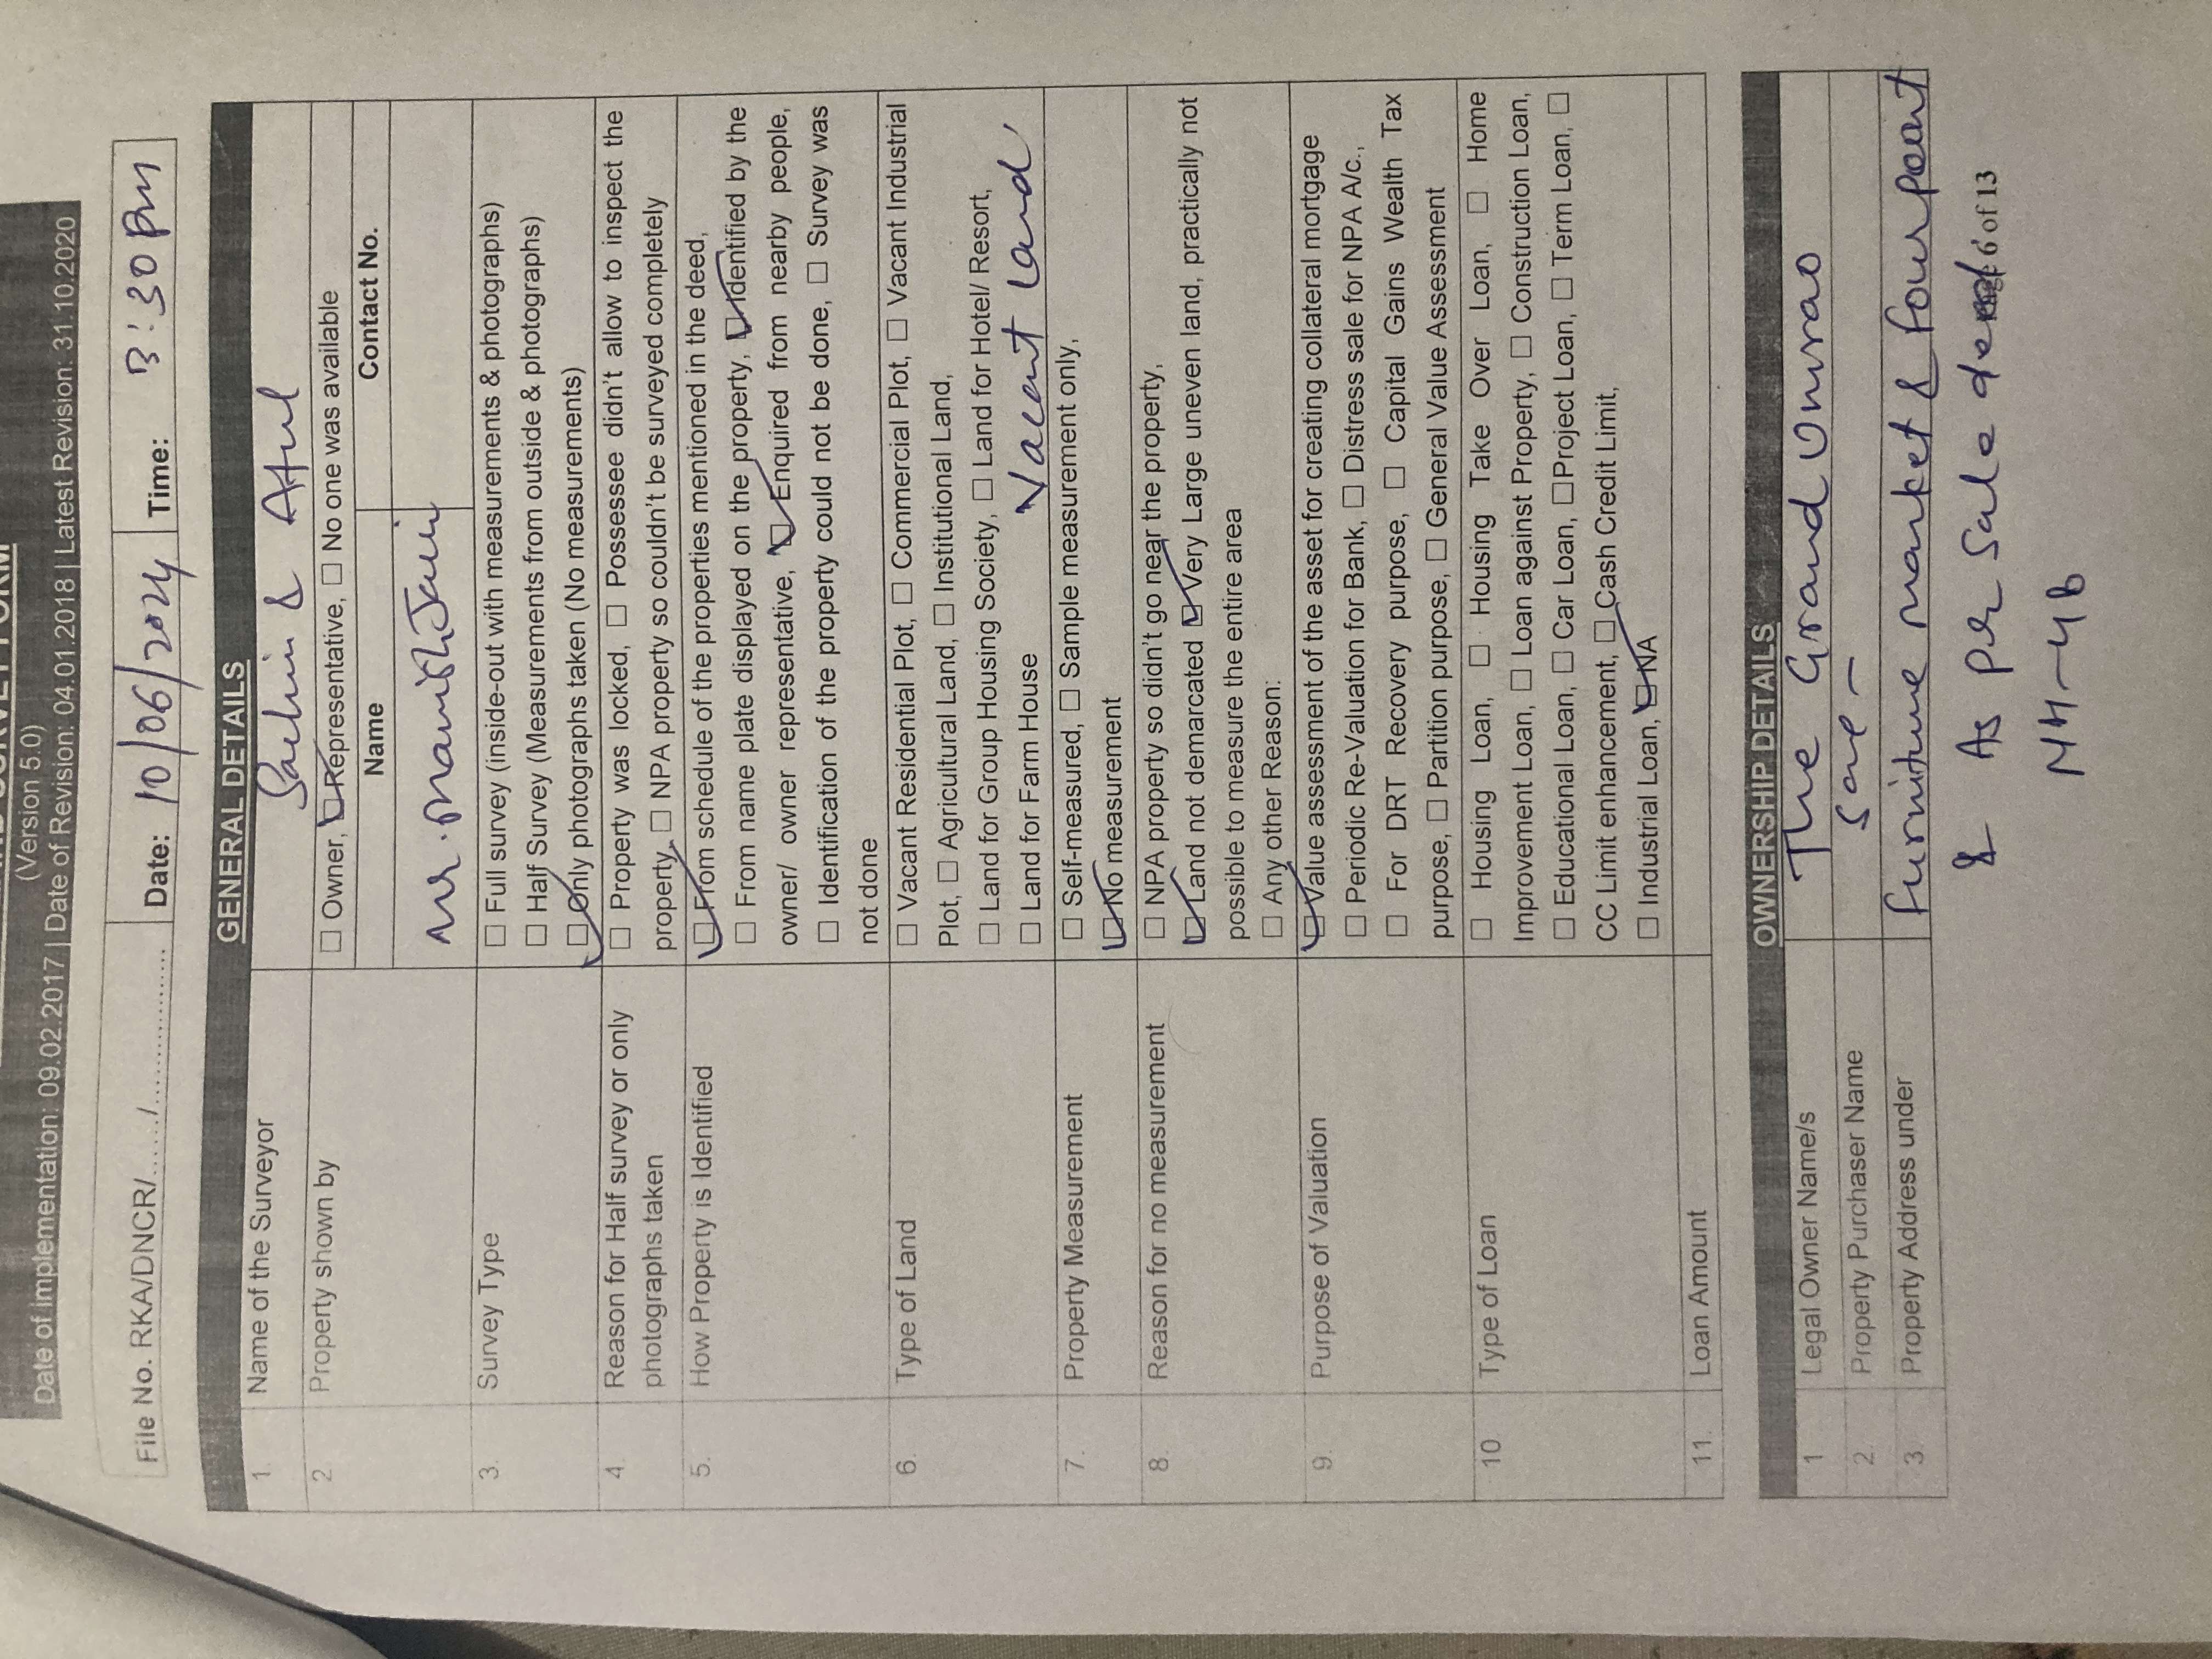 (Version 5.0)
Date of implementation: 09.02.2017 | Date of Revision: 04.01.2018 | Latest Revision: 31.10.2020
File No. RKA/DNCR/....../.................. Date: 10/06/2024 Time: 3:30 PM
GENERAL DETAILS
1. Name of the Surveyor Sachin & Atul
2. Property shown by ☐ Owner, ☑ Representative, ☐ No one was available
Name Contact No.
Mr. Manish Jain
3. Survey Type ☐ Full survey (inside-out with measurements & photographs)
☐ Half Survey (Measurements from outside & photographs)
☑ Only photographs taken (No measurements)
4. Reason for Half survey or only ☐ Property was locked, ☐ Possessee didn't allow to inspect the
photographs taken property, ☐ NPA property so couldn't be surveyed completely
5. How Property is Identified ☑ From schedule of the properties mentioned in the deed,
☐ From name plate displayed on the property, ☑ Identified by the
owner/ owner representative, ☑ Enquired from nearby people,
☐ Identification of the property could not be done, ☐ Survey was
not done
6. Type of Land ☐ Vacant Residential Plot, ☐ Commercial Plot, ☐ Vacant Industrial
Plot, ☐ Agricultural Land, ☐ Institutional Land,
☐ Land for Group Housing Society, ☐ Land for Hotel/ Resort,
☐ Land for Farm House Vacant Land
7. Property Measurement ☐ Self-measured, ☐ Sample measurement only,
☑ No measurement
8. Reason for no measurement ☐ NPA property so didn't go near the property,
☑ Land not demarcated ☑ Very Large uneven land, practically not
possible to measure the entire area
☐ Any other Reason:
9. Purpose of Valuation ☑ Value assessment of the asset for creating collateral mortgage
☐ Periodic Re-Valuation for Bank, ☐ Distress sale for NPA A/c.,
☐ For DRT Recovery purpose, ☐ Capital Gains Wealth Tax
purpose, ☐ Partition purpose, ☐ General Value Assessment
10 Type of Loan ☐ Housing Loan, ☐ Housing Take Over Loan, ☐ Home
Improvement Loan, ☐ Loan against Property, ☐ Construction Loan,
☐ Educational Loan, ☐ Car Loan, ☐ Project Loan, ☐ Term Loan, ☐
CC Limit enhancement, ☐ Cash Credit Limit,
☐ Industrial Loan, ☑ NA
11. Loan Amount
OWNERSHIP DETAILS
1 Legal Owner Name/s The Grand Umrao
2. Property Purchaser Name Same -
3 Property Address under Furniture market & four point
& As per Sale deed
6 of 13
NH-48